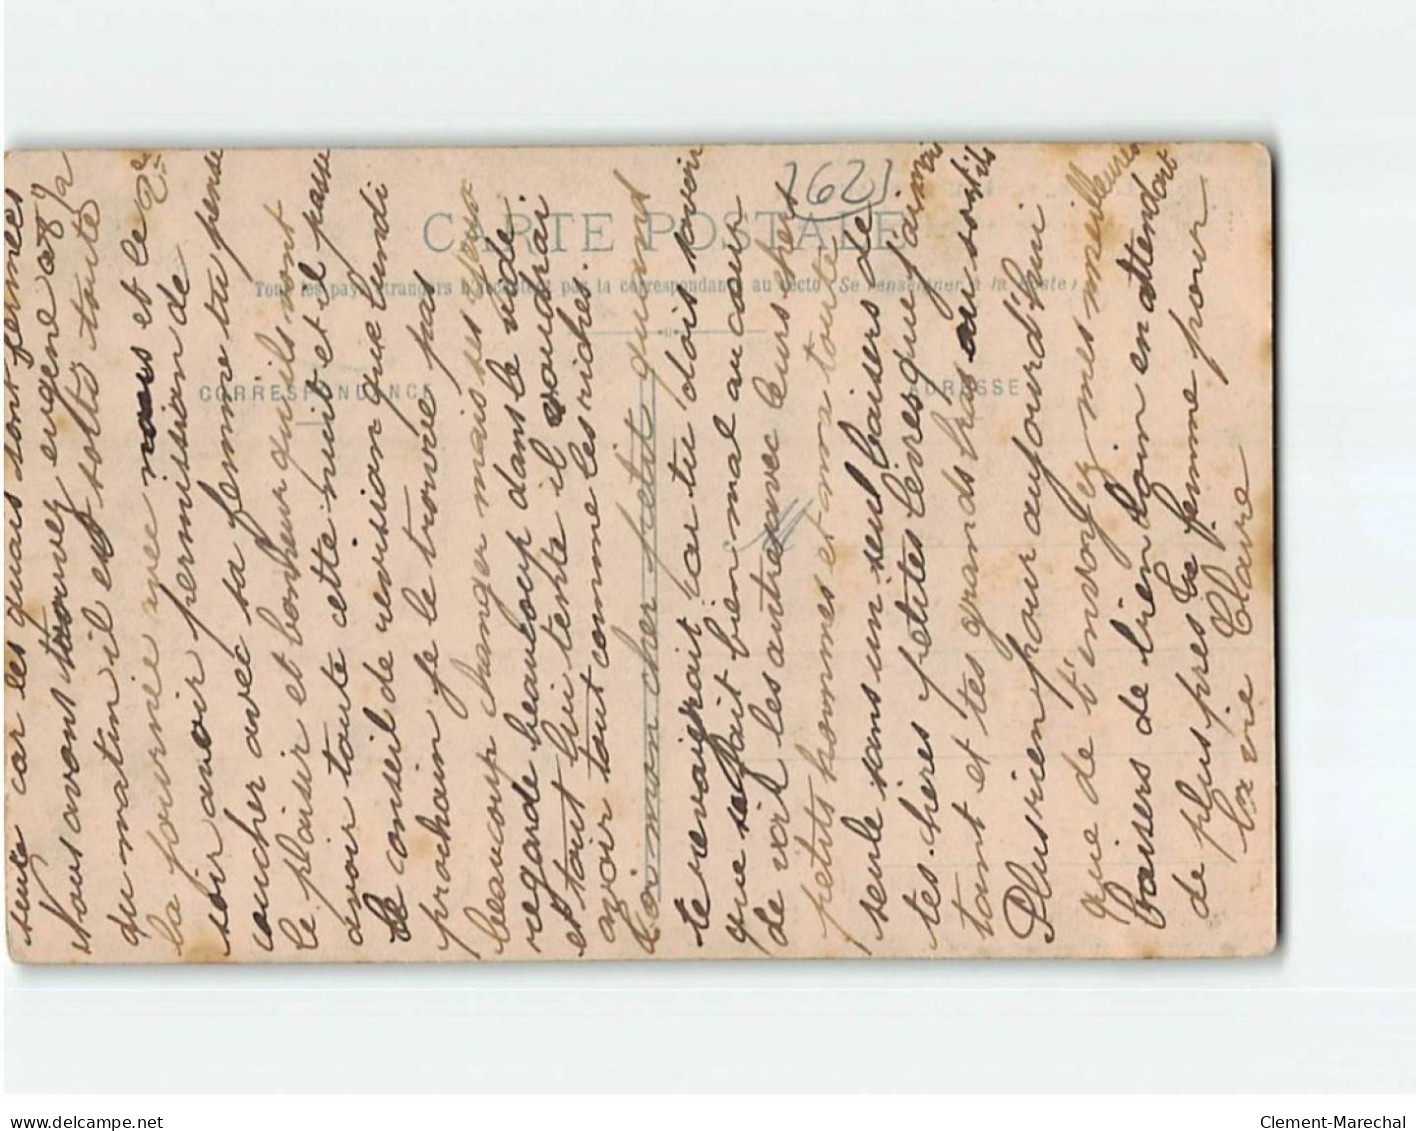 suite car les quais sont fermés
Nous avons trouvez eugene a 8h½
du matin il est sotto toute
la fournie avec nous et le 2e
soir avoir permission de
coucher avec sa femme tu pense
le plaisir et bonheur qu'ils vont
avoir toute cette nuit et il passe
le conseil de revission que lundi
prochain je le trouve pas
beaucoup changer mais ses yeux
regarde beaucoup dans le vide
et tout lui tente il voudrai
avoir tout comme les riches.
Loin mon cher petit quant
te revoigrait car tu dois savoir
que se fait bien mal au cœur
de voir les autres avec leurs chers
petits hommes et ta toute
seule sans un seul baisers de
tes chères petites lèvres que j'aimais
tant et tes grands bras au sortils
Plus rien pour aujourd'hui
que de t'envoyez mes meilleures
baisers de bien loin en attendant
de plus près ta femme pour
la vie Claire
1621
CARTE POSTALE
Tous les pays étrangers n'acceptent pas la correspondance au recto (Se renseigner à la Poste)
CORRESPONDANCE
ADRESSE
M
www.delcampe.net
Clement-Marechal